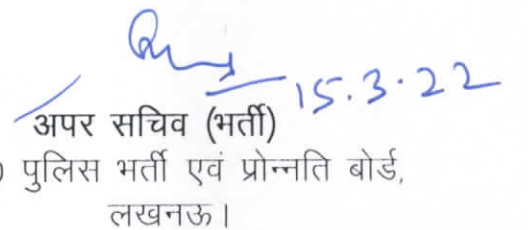 15.3.22
अपर सचिव (भर्ती)
पुलिस भर्ती एवं प्रोन्नति बोर्ड,
लखनऊ।